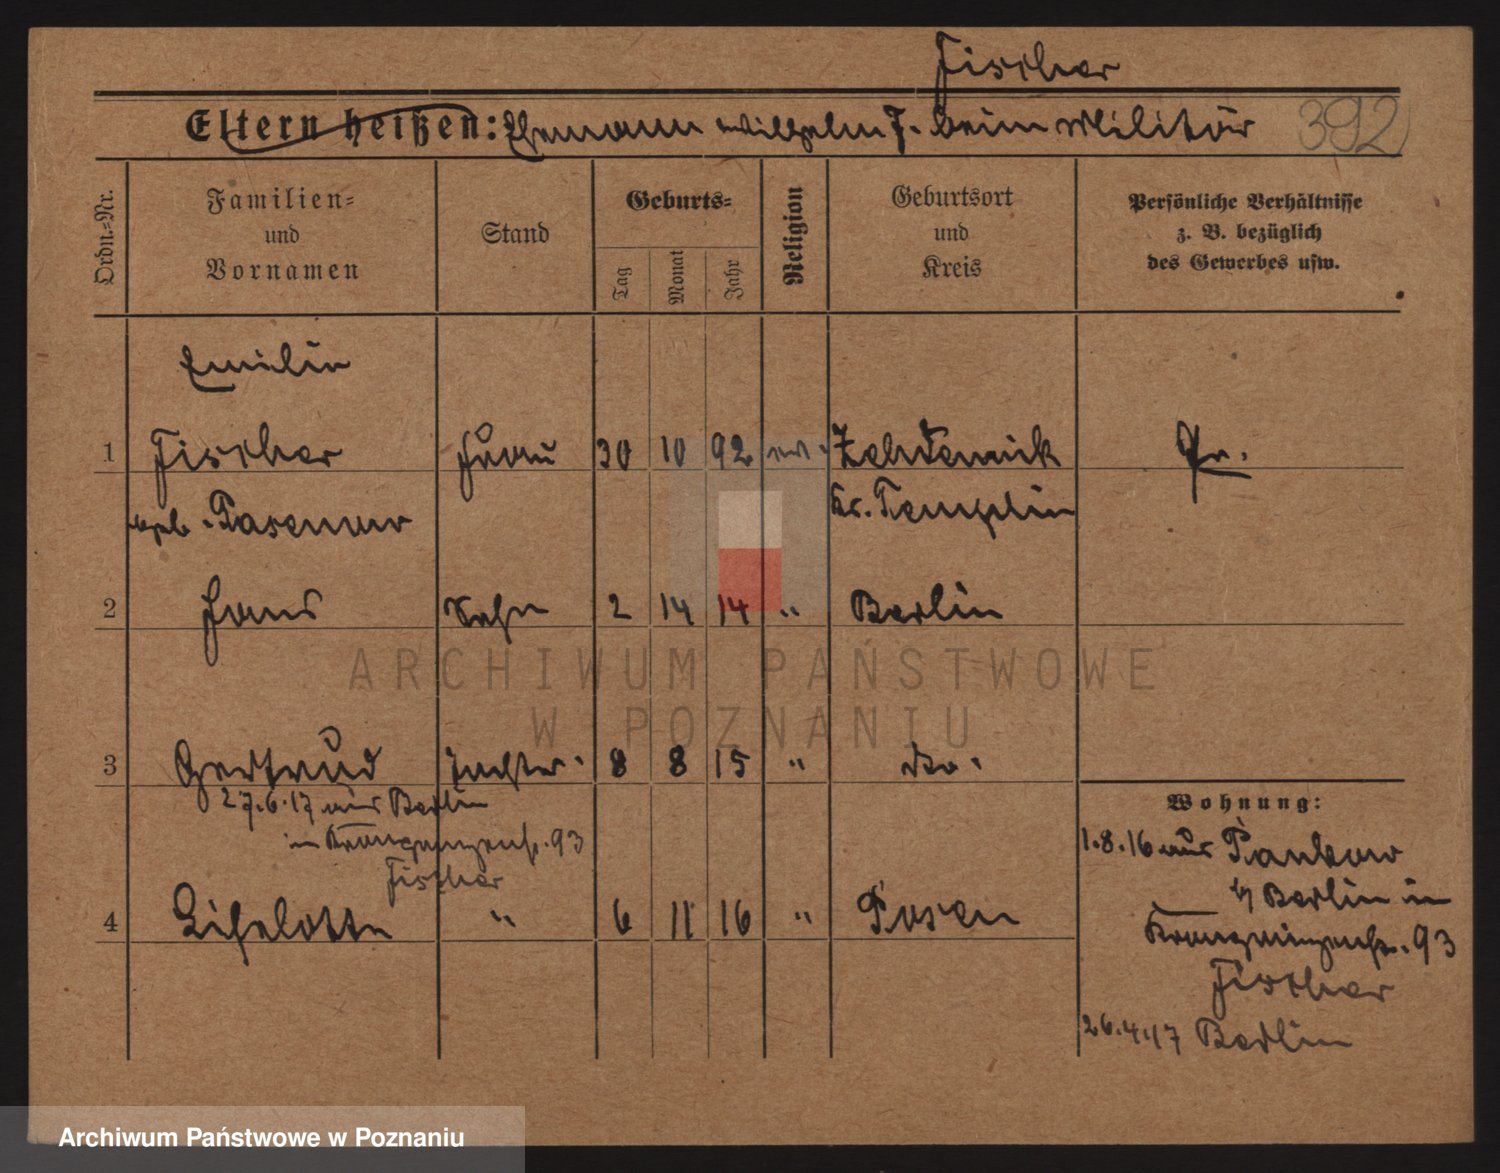 Fischer
Eltern heißen: Ehemann Wilhelm F. beim Militär
392
Ordn.-Nr.
Familien- und Vornamen
Stand
Geburts-
Tag
Monat
Jahr
Religion
Geburtsort und Kreis
Persönliche Verhältnisse
z. B. bezüglich
des Gewerbes usw.
Emilie
1 Fischer Frau 30 10 92 ev. Zehdenick Pr.
geb. Pasenow Kr. Templin
2 Hans Sohn 2 14 14 " Berlin
3 Gertrud Tochter 8 8 15 " do.
27.6.17 aus Berlin
in Kronprinzenstr. 93
Fischer
4 Liselotte " 6 11 16 " Posen
Wohnung:
1.8.16 aus Pankow
b/ Berlin in
Kronprinzenstr. 93
Fischer
26.4.17 Berlin
ARCHIWUM PAŃSTWOWE
W POZNANIU
Archiwum Państwowe w Poznaniu